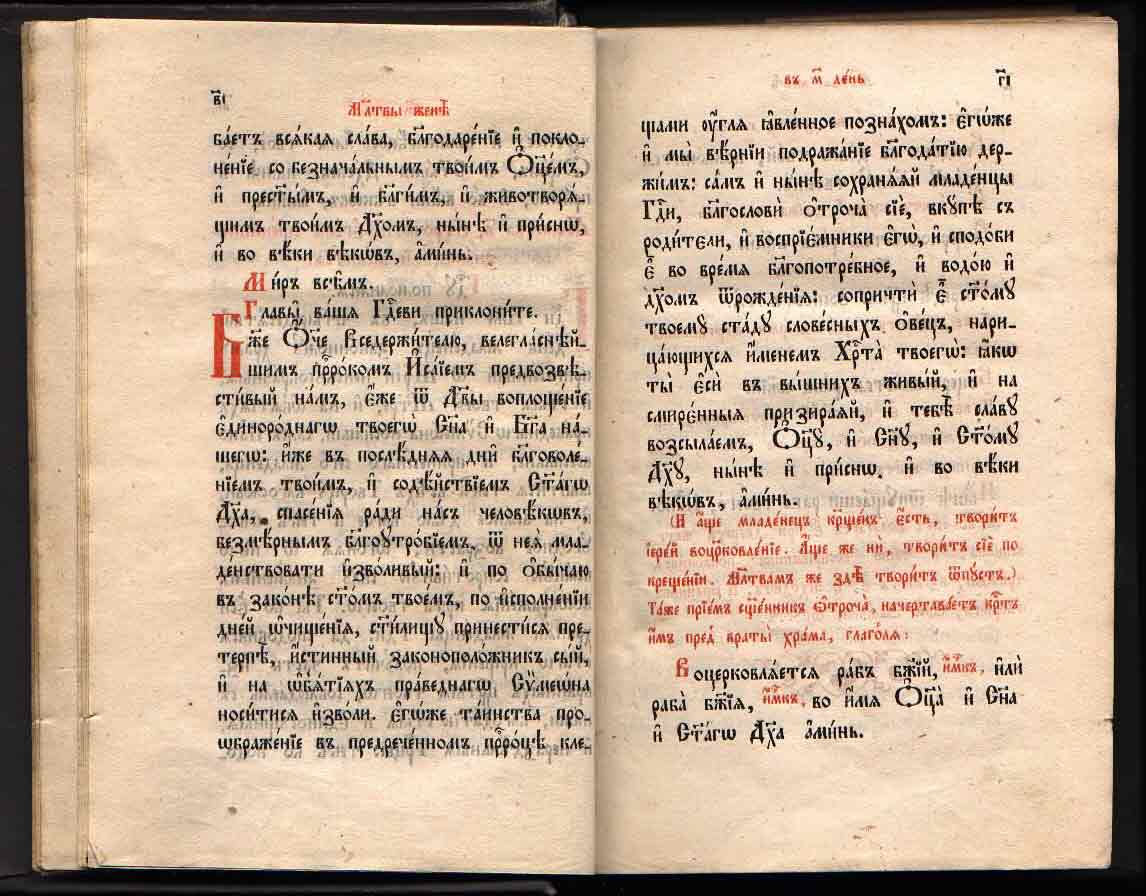 в҃і
Мл҃твы женѣ̀
ба́етъ всѧ́каѧ сла́ва, бл҃годаре́нїе и҆ покло-
не́нїе со безнача́льнымъ твои́мъ Ѻ҆ц҃е́мъ,
и҆ прест҃ы́мъ, и҆ бл҃ги́мъ, и҆ животворѧ́-
щимъ твои́мъ Дх҃омъ, ны́нѣ и҆ при́снѡ,
и҆ во вѣ́ки вѣкѡ́въ, а҆ми́нь.
Ми́ръ всѣ́мъ.
Главы̑ ва́шѧ Гд҇еви приклони́те.
Бж҃е Ѻ҆́ч҃е Вседержи́телю, велегла́снѣй-
шимъ прⷪ҇ро́комъ И҆са́їемъ предвозвѣ-
сти́вый на́мъ, є҆́же ѿ Дв҃ы воплоще́нїе
є҆диноро́днагѡ твоегѡ̀ Сн҃а и҆ Бг҃а на́-
шегѡ: и҆́же въ послѣ́днѧѧ дни̑ бл҃говоле́-
нїемъ твои́мъ, и҆ содѣ́йствїемъ Ст҃а́гѡ
Дх҃а, спасе́нїѧ ра́ди на́съ человѣ́кѡвъ,
безмѣ́рнымъ бл҃гоутро́бїемъ, ѿ неѧ̀ мла-
де́нствовати и҆зво́ливый: и҆ по ѻ҆бы́чаю
въ зако́нѣ ст҃о́мъ твое́мъ, по и҆сполне́нїи
дне́й ѡ҆чище́нїѧ, ст҃и́лищꙋ принести́сѧ пре-
терпѣ̀, и҆́стинный законополо́жникъ сы́й,
и҆ на ѡ҆б̾ѧ́тїѧхъ пра́веднагѡ Сѷмеѡ́на
носи́тисѧ и҆зво́ли. є҆гѡ́же та́инства про-
ѡбраже́нїе въ предрече́нномъ прⷪ҇ро́цѣ кле-
въ м҃ де́нь
г҃і
щами ᲂу҆́глѧ ꙗ҆вле́нное позна́хомъ: є҆гѡ́же
и҆ мы̀ вѣ́рнїи подража́нїе бл҃года́тїю дер-
жи́мъ: са́мъ и҆ ны́нѣ сохранѧ́ѧй младе́нцы
Гд҇и, бл҃гословѝ ѻ҆троча̀ сїѐ, вкꙋ́пѣ съ
роди́тели, и҆ воспрїе́мники є҆гѡ̀, и҆ сподо́би
є҆̀ во вре́мѧ бл҃гопотре́бное, и҆ водо́ю и҆
дх҃омъ ѿрожде́нїѧ: сопричтѝ є҆̀ ст҃о́мꙋ
твоемꙋ̀ ста́дꙋ слове́сныхъ ѻ҆ве́цъ, нари-
ца́ющихсѧ и҆́менемъ Хрⷭ҇та̀ твоегѡ̀: ꙗ҆́кѡ
ты̀ є҆сѝ въ вы́шнихъ живы́й, и҆ на
смире́нныѧ призира́ѧй, и҆ тебѣ̀ сла́вꙋ
возсыла́емъ, Ѻ҆ц҃ꙋ̀, и҆ Сн҃ꙋ, и҆ Ст҃о́мꙋ
Дх҃ꙋ, ны́нѣ и҆ при́снѡ, и҆ во вѣ́ки
вѣкѡ́въ, а҆ми́нь.
(И҆ а҆́ще младе́нецъ крⷭ҇ще́нъ є҆́сть, твори́тъ
і҆ере́й воцр҃ковле́нїе. А҆́ще же нѝ, твори́тъ сїѐ по
креще́нїи. Мл҃твамъ же здѣ̀ твори́тъ ѿпꙋ́стъ.)
Та́же прїе́мъ сщ҃е́нникъ ѻ҆троча̀, начертава́етъ крⷭ҇тъ
и҆́мъ пред̾ враты̑ хра́ма, глаго́лѧ:
Воцерковлѧ́етсѧ ра́бъ бж҃їй, и҆́мⷬ҇къ, и҆лѝ
раба̀ бж҃їѧ, и҆́мⷬ҇къ, во и҆́мѧ Ѻ҆ц҃а̀ и҆ Сн҃а
и҆ Ст҃а́гѡ Дх҃а а҆ми́нь.